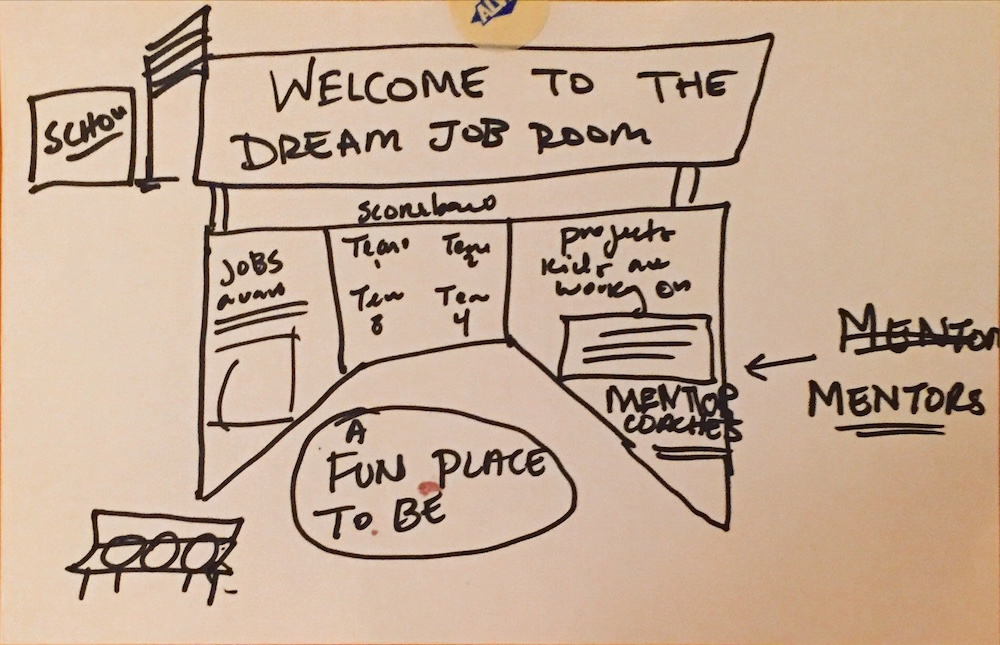 WELCOME TO THE
DREAM JOB ROOM
SCHOOL
scoreboard
JOBS
Team 1
Team 2
Team 3
Team 4
projects
kids are
working on
MENTOR
COACHES
MENTOR
MENTORS
A
FUN PLACE
TO BE